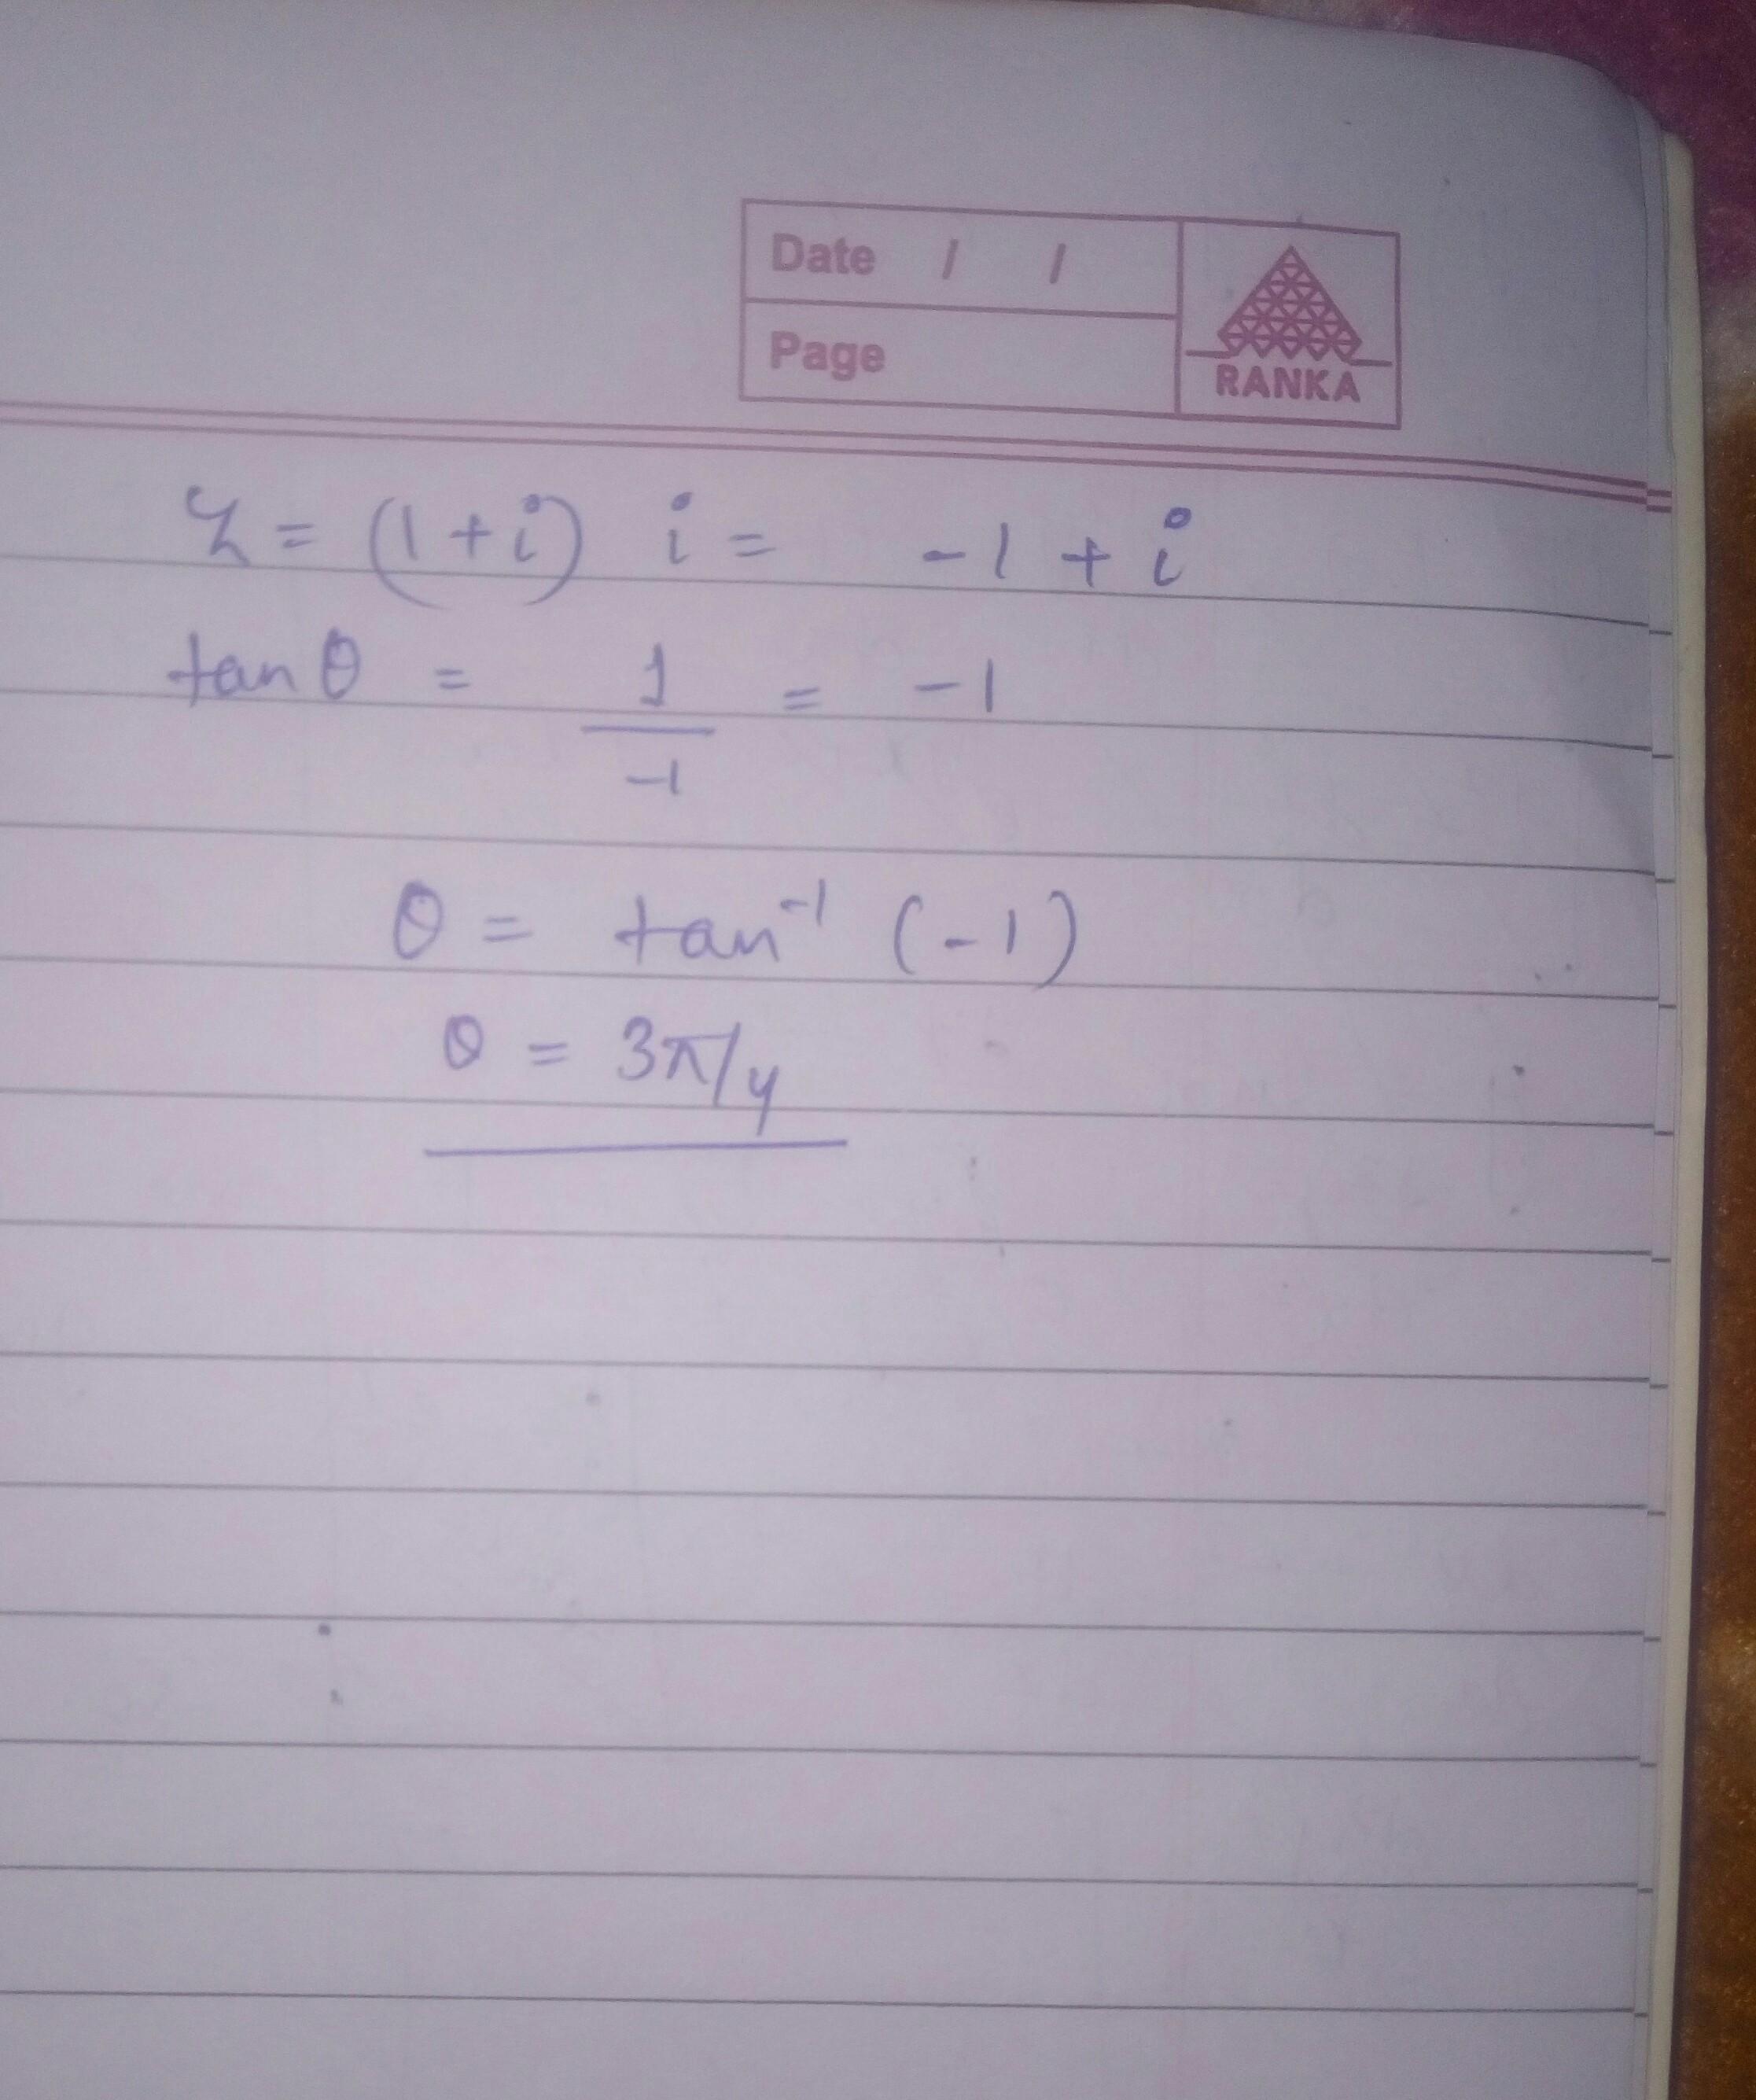 Date / /
Page
RANKA
z = (1 + i) i = -1 + i
tan θ = 1/-1 = -1
θ = tan⁻¹ (-1)
θ = 3π/4